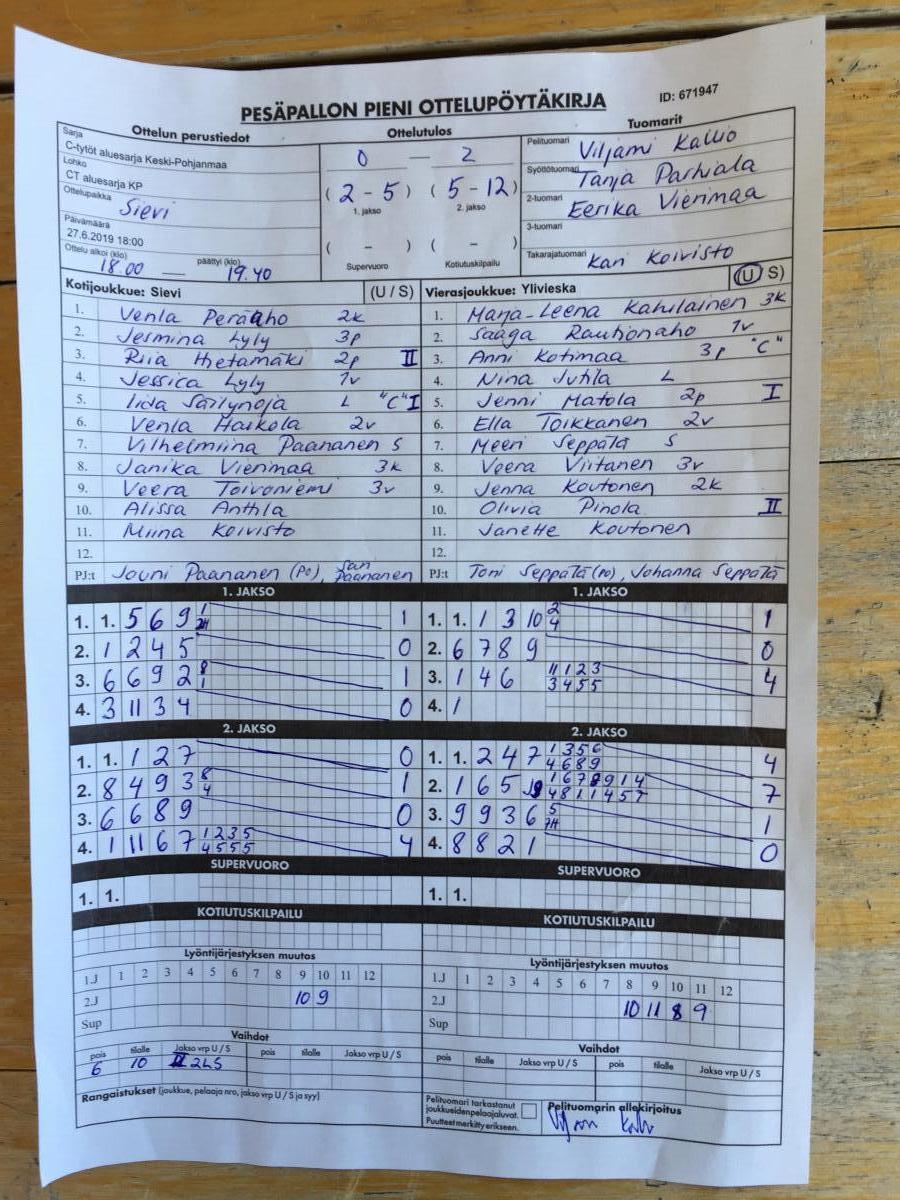 PESÄPALLON PIENI OTTELUPÖYTÄKIRJA
ID: 671947
Ottelun perustiedot
Sarja
C-tytöt aluesarja Keski-Pohjanmaa
Lohko
CT aluesarja KP
Ottelupaikka
Sievi
Päivämäärä
27.6.2019 18:00
Ottelu alkoi (klo) päättyi (klo)
18.00 — 19.40
Ottelutulos
0 — 2
(2 - 5) (5 - 12)
1. jakso 2. jakso
( - ) ( - )
Supervuoro Kotiutuskilpailu
Tuomarit
Pelituomari Viljami Kallio
Syöttötuomari Tanja Parhiala
2-tuomari Eerika Vierimaa
3-tuomari
Takarajatuomari Kari Koivisto
Kotijoukkue: Sievi (U / S)
1. Venla Peräaho 2k
2. Jesmina Lyly 3p
3. Riia Ihetamäki 2p II
4. Jessica Lyly 1v
5. Iida Säilynoja L "C" I
6. Venla Haikola 2v
7. Vilhelmiina Paananen S
8. Janika Vierimaa 3k
9. Veera Toivoniemi 3v
10. Alissa Anttila
11. Miina Koivisto
12.
PJ:t Jouni Paananen (PO), Sari Paananen
Vierasjoukkue: Ylivieska (U / S)
1. Marja-Leena Kahilainen 3k
2. Saaga Rautionaho 1v
3. Anni Kotimaa 3p "C"
4. Nina Jutila L
5. Jenni Matola 2p I
6. Ella Toikkanen 2v
7. Meeri Seppälä S
8. Veera Viitanen 3v
9. Jenna Koutonen 2k
10. Olivia Pinola II
11. Janette Koutonen
12.
PJ:t Toni Seppälä (PO), Johanna Seppälä
1. JAKSO
1. 1. 5 6 9 1
2. 1 2 4 5 0
3. 6 6 9 2 8 1 1
4. 3 11 3 4 0
1. JAKSO
1. 1. 1 3 10 2 4 1
2. 6 7 8 9 0
3. 1 4 6 11 1 2 3 3 4 5 5 4
4. 1
2. JAKSO
1. 1. 1 2 7 0
2. 8 4 9 3 8 4 1
3. 6 6 8 9 0
4. 1 11 6 7 1 2 3 5 4 5 5 5 4
2. JAKSO
1. 1. 2 4 7 1 3 5 6 4 6 8 9 4
2. 1 6 5 7
3. 9 9 3 6 5 1
4. 8 8 2 1 0
SUPERVUORO
1. 1.
SUPERVUORO
1. 1.
KOTIUTUSKILPAILU
KOTIUTUSKILPAILU
Lyöntijärjestyksen muutos
1.J 1 2 3 4 5 6 7 8 9 10 11 12
2.J 10 9
Sup
Lyöntijärjestyksen muutos
1.J 1 2 3 4 5 6 7 8 9 10 11 12
2.J 10 11 8 9
Sup
Vaihdot
pois tilalle Jakso vrp U / S pois tilalle Jakso vrp U / S
6 10 2LS
Vaihdot
pois tilalle Jakso vrp U / S pois tilalle Jakso vrp U / S
Rangaistukset (joukkue, pelaaja nro, jakso vrp U / S ja syy)
Pelituomari tarkastanut
joukkueidenpelaajaluvat.
Puutteet merkitty erikseen.
Pelituomarin allekirjoitus